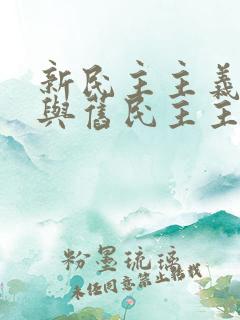 新民主主義
與舊民主主
粉墨琉璃
未经同意禁止转载